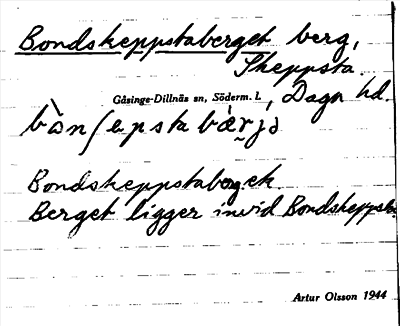 Bondskeppstaberget berg,
Skeppsta
Gåsinge-Dillnäs sn, Söderm. l., Daga hd.
bɷ̀nʃepstabæ̀rjə
Bondskeppstaberg.ek.
Berget ligger invid Bondskeppsta.
Artur Olsson 1944